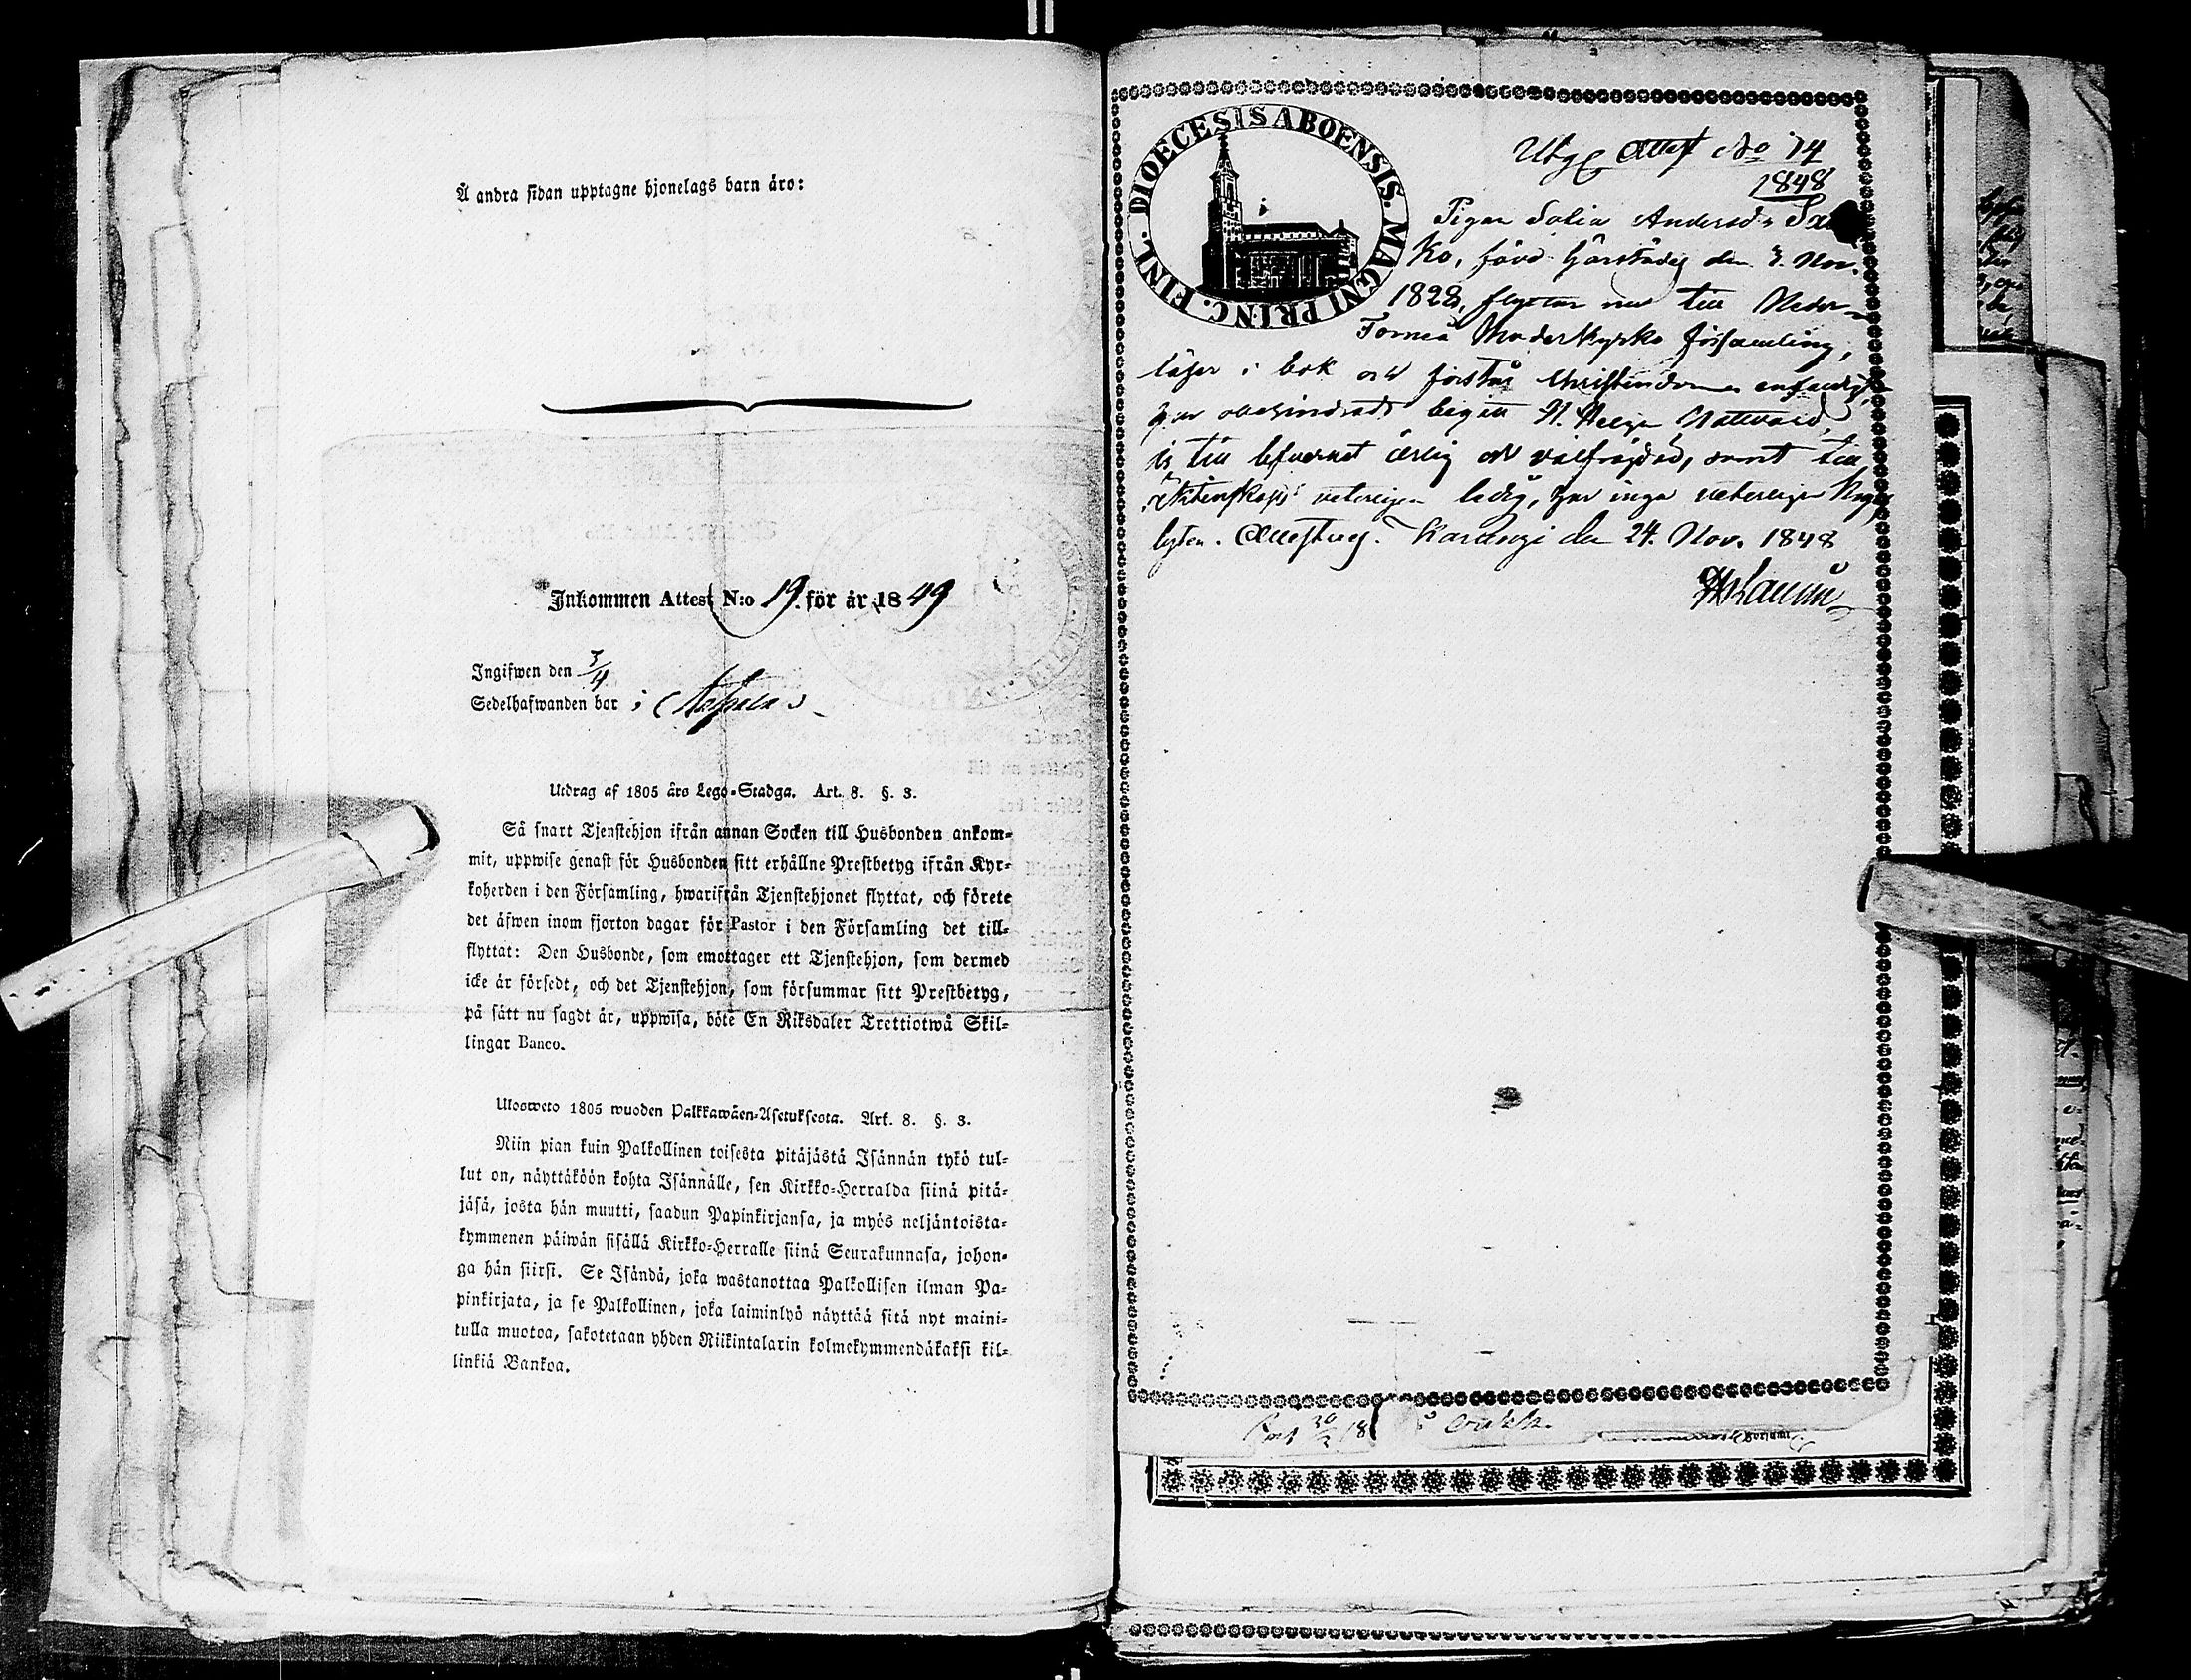 Å andra sidan upptagne hjonelags barn äro:
Inkommen Attest N:o 19. för år 1849
Ingifwen den 3/4
Sedelhafwanden bor i
Utdrag af 1805 års Lego-Stadga. Art. 8. §. 3.
Så snart Tjenstehjon ifrån annan Socken till Husbonden ankom-
mit, uppwise genast för Husbonden sitt erhållne Prestbetyg ifrån Kyr-
koherden i den Församling, hwarifrån Tjenstehjonet flyttat, och förete
det äfwen inom fjorton dagar för Pastor i den Församling det till-
flyttat: Den Husbonde, som emottager ett Tjenstehjon, som dermed
icke är försedt, och det Tjenstehjon, som försummar sitt Prestbetyg,
på sätt nu sagdt är, uppwisa, böte En Riksdaler Trettiotwå Skil-
lingar Banco.
Ulosweto 1805 wuoden Palkkawäen-Asetuksesta. Art. 8. §. 3.
Niin pian kuin Palkollinen toisesta pitäjästä Isännän tykö tul-
lut on, näyttäköön kohta Isännälle, sen Kirkko-Herralda siinä pitä-
jäsä, josta hän muutti, saadun Papinkirjansa, ja myös neljäntoista-
kymmenen päiwän sisällä Kirkko-Herralle siinä Seurakunnasa, johon-
ga hän siirsi. Se Isändä, joka wastanottaa Palkollisen ilman Pa-
pinkirjata, ja se Palkollinen, joka laiminlyö näyttää sitä nyt maini-
tulla muotoa, sakotetaan yhden Riikintalarin kolmekymmendäkaksi kil-
linkiä Bankoa.
DIOECESIS ABOENSIS. MAGNI PRINC. FINL.
Utg Attest No 74
1848
Pigan Anders
ko, född härstädes den 3. Nov.
1828, flyttar nu till Neder
Torneå Moderkyrko församling,
läser i bok och förstår Christendomen
har obehindradt begått H. Helga Nattvard,
är till lefvernet ärlig och välfrägdad, samt till
äktenskap veterligen ledig, har inga veterligen
lyten. Attesteras. Karungi den 24. Nov. 1848